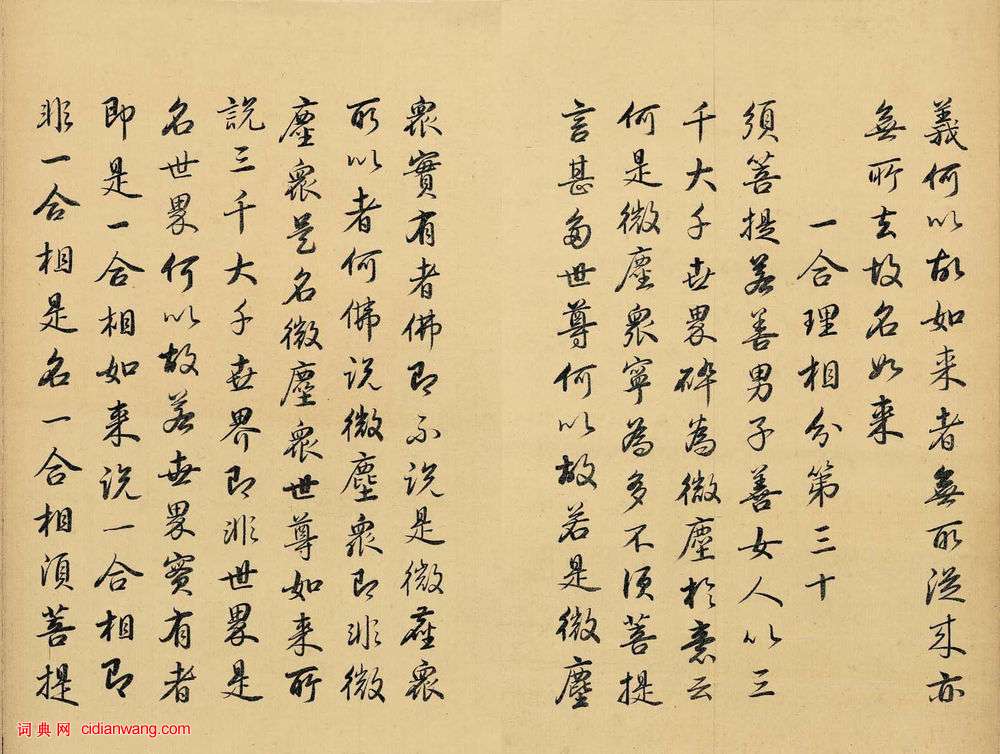 義何以故如来者無所從来亦
無所去故名如来
一合理相分第三十
須菩提若善男子善女人以三
千大千世界碎為微塵於意云
何是微塵衆寧為多不須菩提
言甚多世尊何以故若是微塵
衆實有者佛即不說是微塵衆
所以者何佛說微塵衆即非微
塵衆是名微塵衆世尊如来所
說三千大千世界即非世界是
名世界何以故若世界實有者
即是一合相如来說一合相即
非一合相是名一合相須菩提
词典网 cidianwang.com